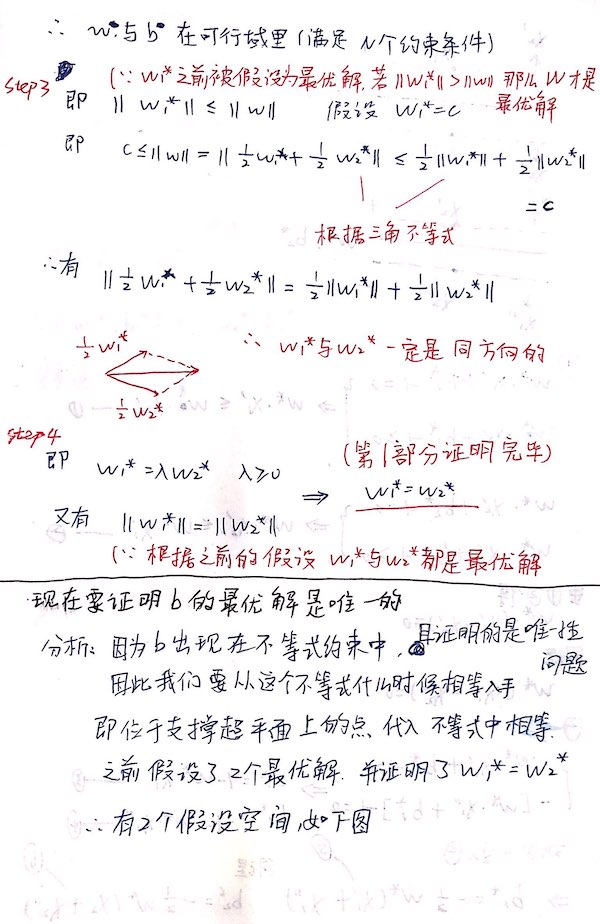 ∴ w* 与 b* 在可行域里 (满足 N个约束条件)
step3
(∵ w₁* 之前被假设为最优解, 若 ||w₁*|| > ||w|| 那么 W 才是
最优解
即 || w₁* || ≤ || w || 假设 w₁* = c
即 c ≤ ||w|| = || ½ w₁* + ½ w₂* || ≤ ½ ||w₁*|| + ½ ||w₂*||
= c
根据三角不等式
∴有 || ½ w₁* + ½ w₂* || = ½ ||w₁*|| + ½ || w₂* ||
½ w₁*
½ w₂*
∴ w₁* 与 w₂* 一定是同方向的
step4
即 w₁* = λ w₂* λ ≥ 0
(第1部分证明完毕)
⇒ w₁* = w₂*
又有 || w₁* || = || w₂* ||
(∵ 根据之前的假设 w₁* 与 w₂* 都是最优解
现在要证明 b 的最优解是唯一的
分析: 因为 b 出现在不等式约束中, 且证明的是唯一性
问题
因此我们要从这个不等式什么时候相等入手
即位于支撑超平面上的点 代入 不等式中相等.
之前假设了 2个最优解. 并证明了 w₁* = w₂*
∴ 有 2个假设空间, 如下图